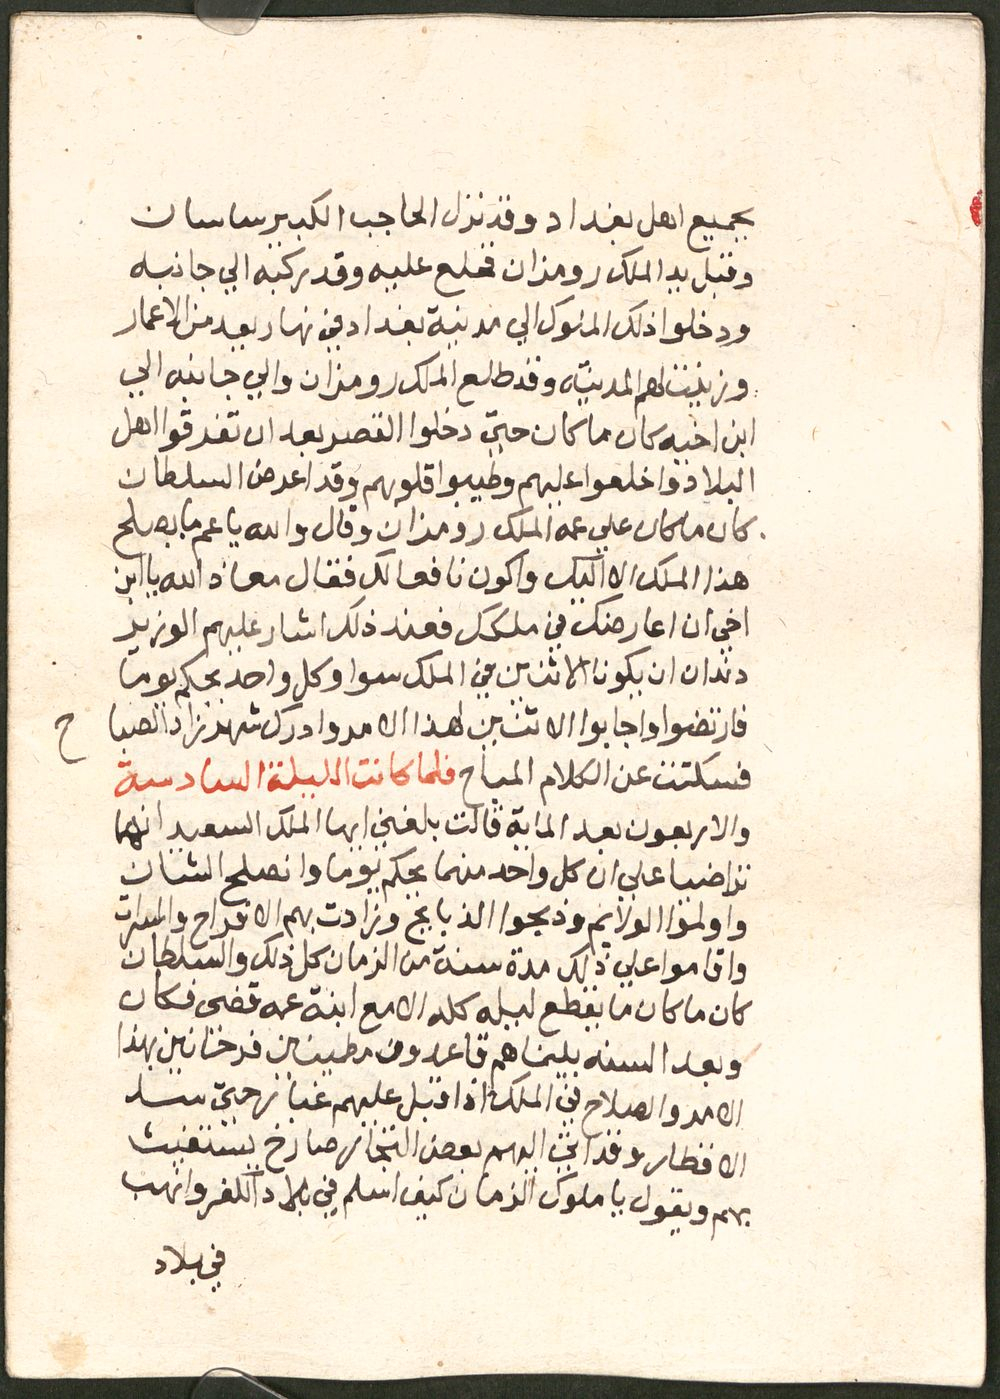 بجميع اهل بغداد وقد نزل الحاجب الكبير ساسان
وقبل يد الملك رومزان فخلع عليه وقد ركبه الي جانبه
ودخلوا ذلك الملوك الي مدينة بغداد في نهار يعد من الاعمار
وزينت لهم المدينه وقد طلع الملك رومزان والي جانبه الي
ابن اخيه كان ما كان حتي دخلوا القصر بعد ان تفرقوا اهل
البلاد واخلعوا عليهم وطيبوا قلوبهم وقد اعرض السلطان
كان ما كان علي عمه الملك رومزان وقال والله يا عم ما يصلح
هذا الملك الا اليك واكون نافعا لك فقال معاذ الله يا ابن
اخي ان اعارضك في ملكك فعند ذلك اشار عليهم الوزير
دندان ان يكونا الاثنين في الملك سوا وكل واحد يحكم يوما
فارتضوا واجابوا الاثنين لهذا الامر وادرك شهرزاد الصبا ح
فسكتت عن الكلام المباح فلما كانت الليلة السادسة
والاربعون بعد الماية قالت بلغني ايها الملك السعيد انهما
تراضيا علي ان كل واحد منهما يحكم يوما وانصلح الشان
واولموا الولايم وذبحوا الذبايح وزادت بهم الافراح والمسرات
واقاموا علي ذلك مدة سنة من الزمان كل ذلك والسلطان
كان ما كان ما يقطع ليله كله الا مع ابنة عمه قضي فكان
وبعد السنه بينما هم قاعدون مطمينين فرحانين بهذا
الامر والصلاح في الملك اذا قبل عليهم غبار حتي سد
الاقطار وقد اتي اليهم بعض التجار صارخ يستغيث
بهم ويقول يا ملوك الزمان كيف اسلم في بلاد الكفر وانهب
في بلاد